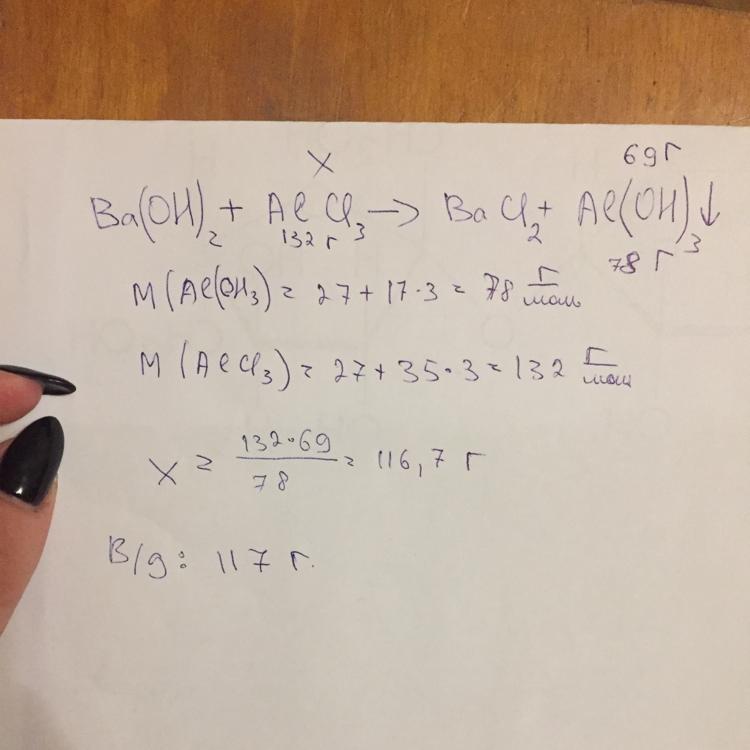 X 69 г
Ba(OH)₂ + AlCl₃ → BaCl₂ + Al(OH)₃↓
132 г 78 г
M(Al(OH₃) = 27 + 17·3 = 78 г/моль
M(AlCl₃) = 27 + 35·3 = 132 г/моль
X = 132·69/78 = 116,7 г
В/g: 117 г.